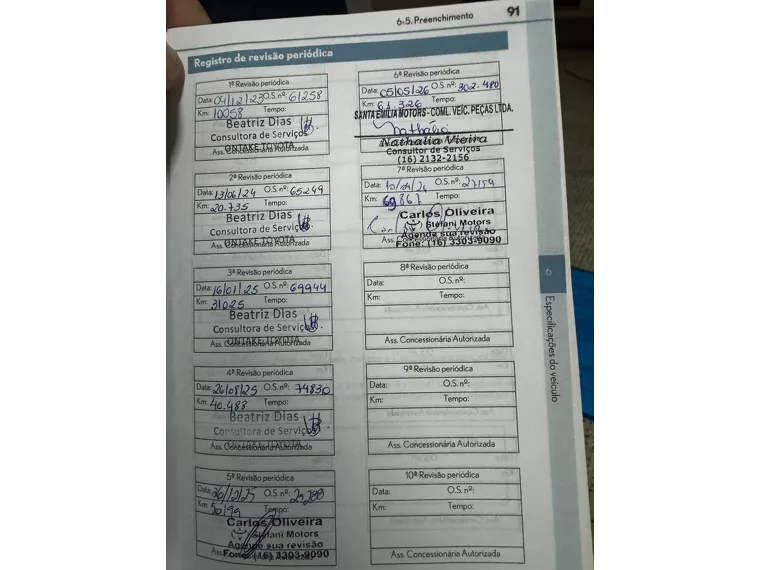 6-5. Preenchimento 91
Registro de revisão periódica
1ª Revisão periódica
Data: 04/12/23 O.S. nº: 61258
Km: 10058 Tempo:
Beatriz Dias
Consultora de Serviços
ONTAKE TOYOTA
Ass. Concessionária Autorizada
2ª Revisão periódica
Data: 13/06/24 O.S. nº: 65249
Km: 20.735 Tempo:
Beatriz Dias
Consultora de Serviços
ONTAKE TOYOTA
Ass. Concessionária Autorizada
3ª Revisão periódica
Data: 16/01/25 O.S. nº: 69944
Km: 31025 Tempo:
Beatriz Dias
Consultora de Serviços
ONTAKE TOYOTA
Ass. Concessionária Autorizada
4ª Revisão periódica
Data: 26/08/25 O.S. nº: 74830
Km: 40.488 Tempo:
Beatriz Dias
Consultora de Serviços
ONTAKE TOYOTA
Ass. Concessionária Autorizada
5ª Revisão periódica
Data: 26/12/25 O.S. nº:
Km: Tempo:
Carlos Oliveira
Stéfani Motors
Agende sua revisão
Fone: (16) 3303-9090
6ª Revisão periódica
Data: 05/05/26 O.S. nº: 302.480
Km: 61.326 Tempo:
SANTA EMILIA MOTORS - COML. VEÍC. PEÇAS LTDA.
Nathália
Nathalia Vieira
Consultor de Serviços
(16) 2132-2156
7ª Revisão periódica
Data: O.S. nº: 27159
Km: 69867 Tempo:
Carlos Oliveira
Stéfani Motors
Agende sua revisão
Fone: (16) 3303-9090
8ª Revisão periódica
Data: O.S. nº:
Km: Tempo:
Ass. Concessionária Autorizada
9ª Revisão periódica
Data: O.S. nº:
Km: Tempo:
Ass. Concessionária Autorizada
10ª Revisão periódica
Data: O.S. nº:
Km: Tempo:
Ass. Concessionária Autorizada
6
Especificações do veículo